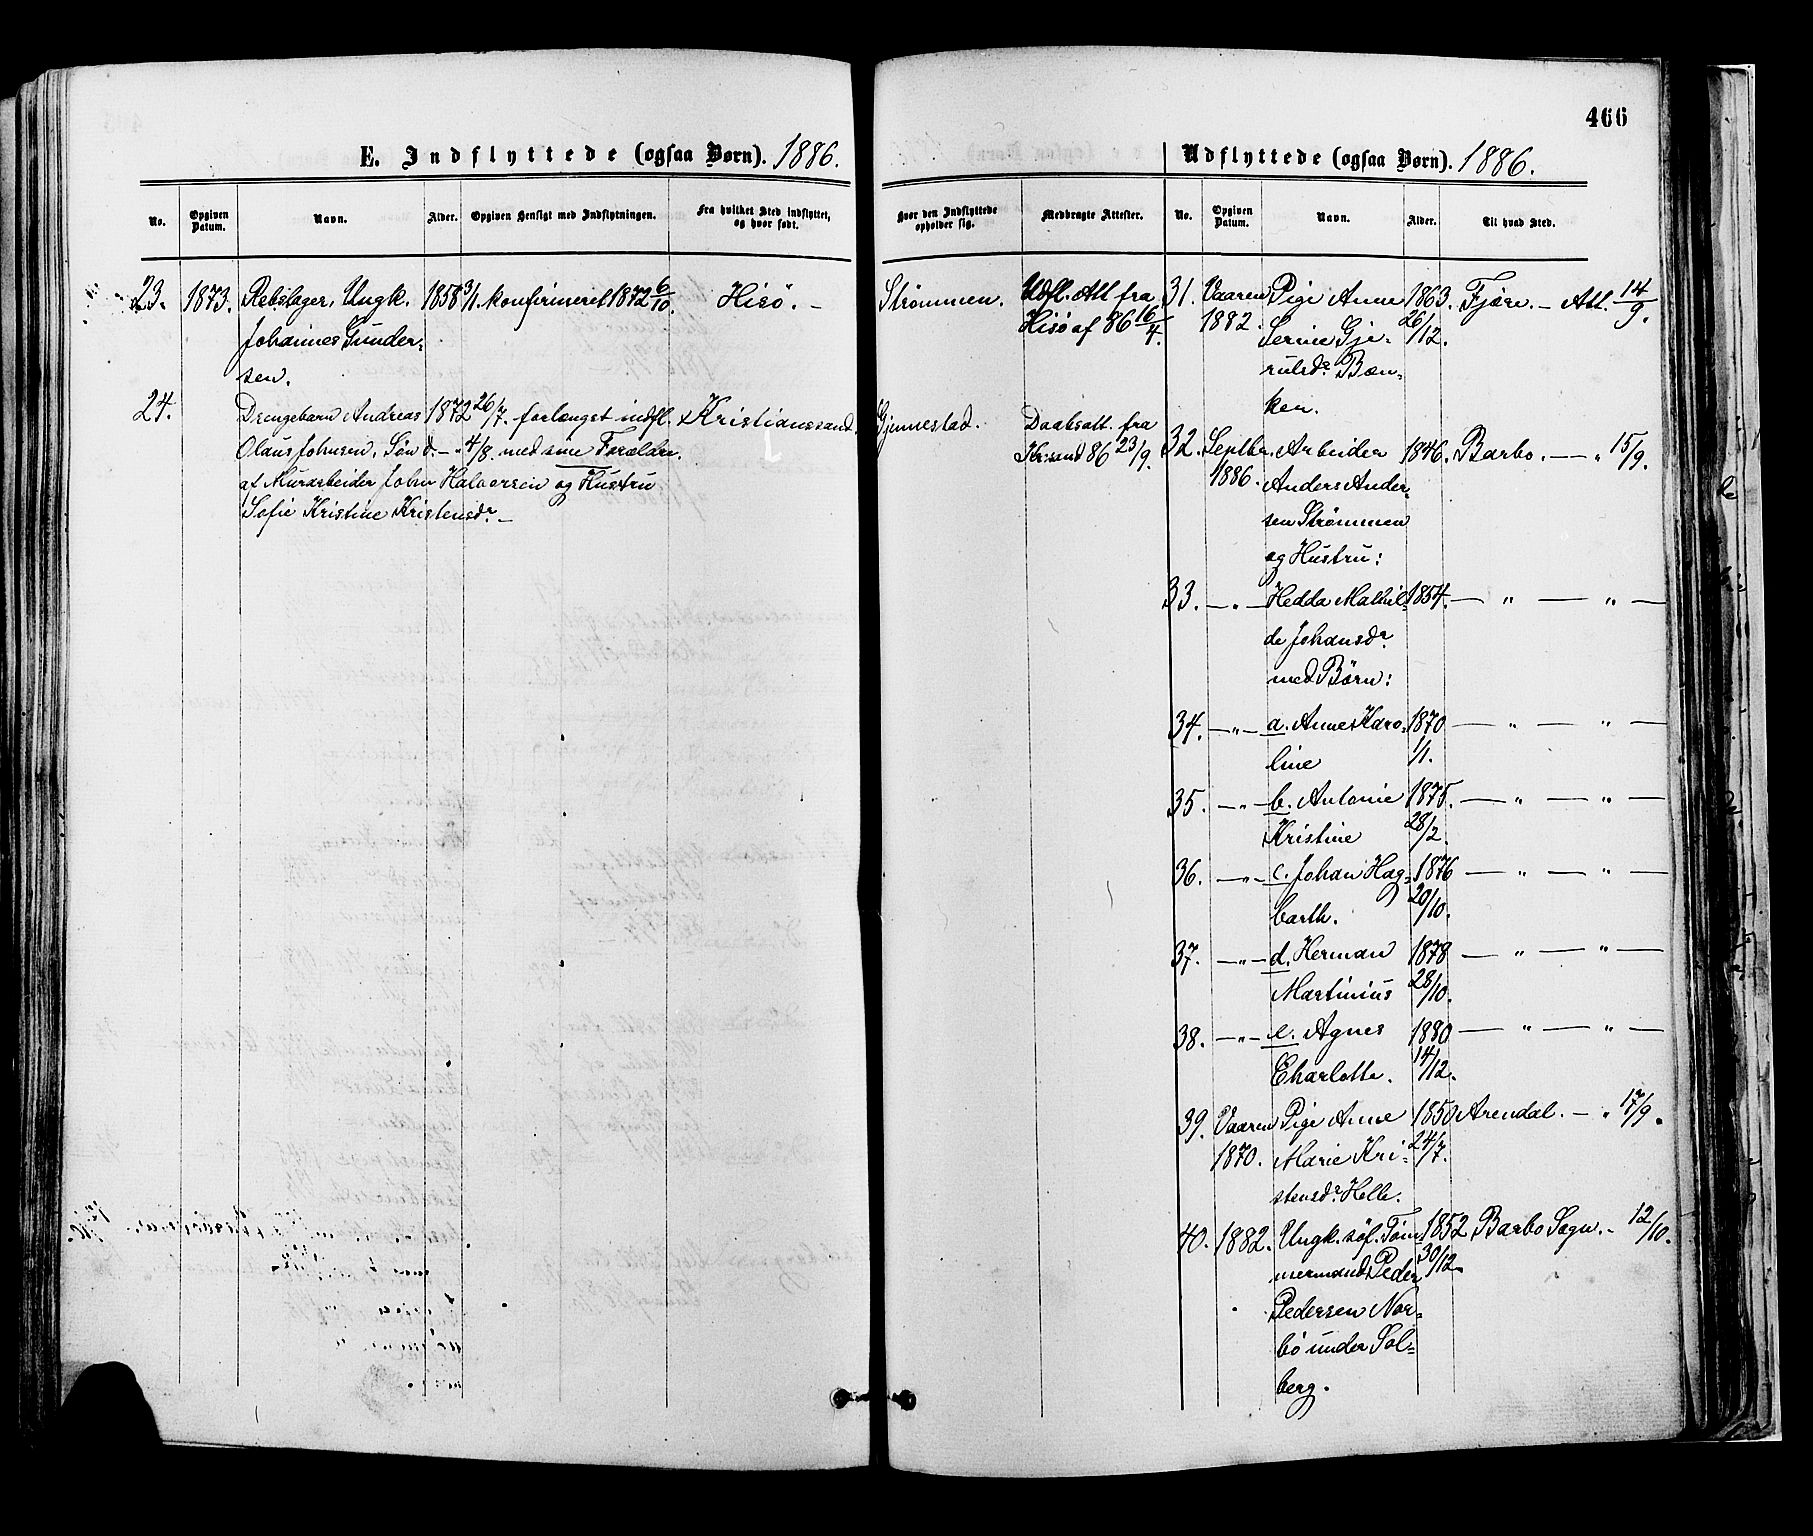 466
E. Indflyttede (ogsaa Børn). 1886.
No. Opgiven Datum. Navn. Alder. Opgiven Hensigt med Indflytningen. Fra hvilket Sted indflyttet, og hvor født. Hvor den Indflyttede opholder sig. Medbragte Attester.
23. 1873. Rebslager, Ungk. 1858 3/1. konfirmeret 1872 6/10. Hisö. – Strømmen. Udfl. Att fra
Johannes Gunder- Hisö af 86 16/4.
sen.
24. Drengebarn Andreas 1872 26/7. – forlænget indfl. Kristianssand. Gjennestad. Daabsatt. fra
Olaus Johnsen, Søn d. – " 4/8. med sine Forældre. Kr.sand 86 23/9.
af Murarbeider John Halvorsen og Hustru
Sofie Kristine Kristensdr. –
Udflyttede (ogsaa Børn). 1886.
No. Opgiven Datum. Navn. Alder. Til hvad Sted.
31. Vaaren Pige Anne 1863. Fjære. – Att. 14/9.
1882. Serine Gje- 26/12.
rulsdr. Bæn-
ken.
32. Septbr. Arbeider 1846. Barbo. — " 15/9.
1886. Anders Ander-
sen Strømmen
og Hustru:
33. – " – Hedda Mathil- 1854. — " — " —
de Johansdr.
med Børn:
34. – " – a. Anne Karo- 1870 — " — " —
line 1/1.
35. – " – b. Antonie 1875. — " — " —
Kristine 28/2.
36. – " – c. Johan Hag- 1876 — " — " —
barth. 20/10.
37. – " – d. Herman 1878 — " — " —
Martinius 28/10.
38. – " – e. Agnes 1880 — " — " —
Charlotte. 14/12.
39. Vaaren Pige Anne 1850 Arendal. – " 17/9.
1870. Marie Kri- 24/7.
stensdr. Helle.
40. 1882. Ungk. søf. Tøm- 1852 Barbo Sogn. – 12/10.
mermand Peder 30/12.
Pedersen Nor-
bö under Sol-
berg.